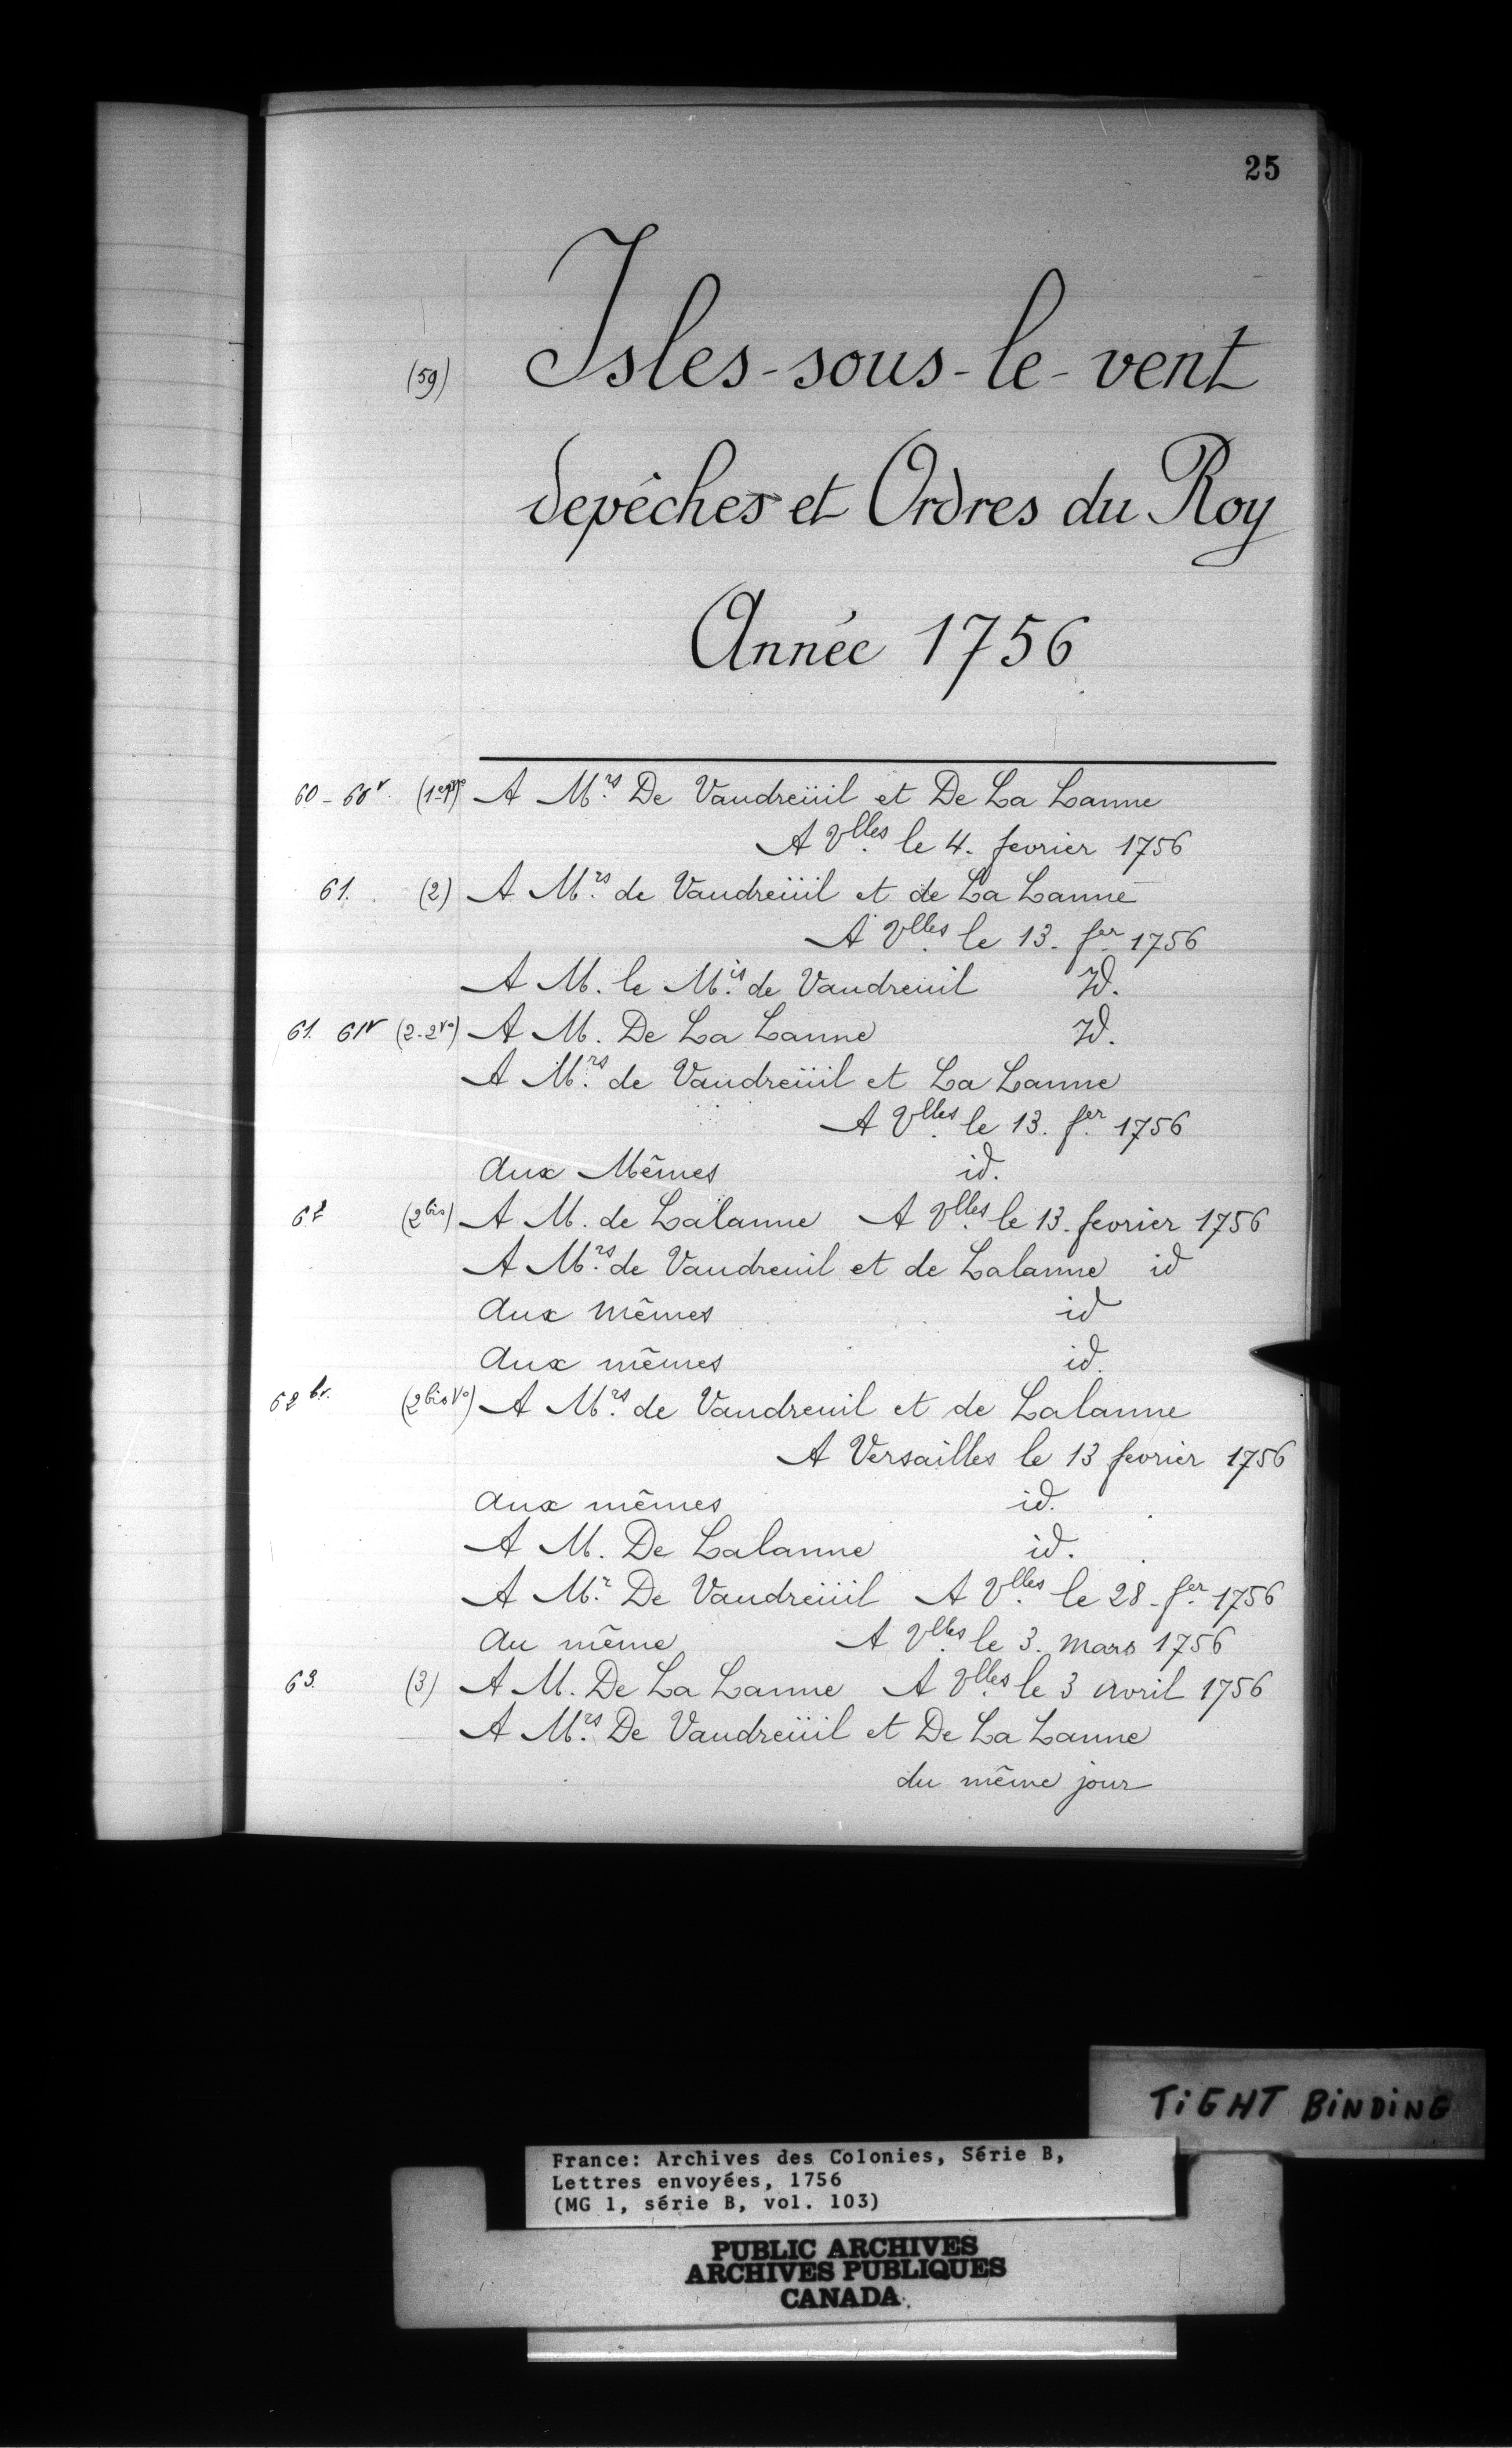 25
(59) Isles-sous-le-vent
depêches et Ordres du Roy
Année 1756
60 - 60v. A Mrs. De Vaudreüil et De La Lanne
A Vlles le 4. fevrier 1756
61. (2) A Mrs. de Vaudreüil et de La Lanne
A Vlles le 13. fer 1756
A M. le Mis. de Vaudreuil Id.
61. 61v (2-2vo) A M. De La Lanne Id.
A Mrs. de Vaudreüil et La Lanne
A Vlles le 13. fer 1756
Aux Mêmes id.
62 (2bis) A M. de Lalanne A Vlles le 13. fevrier 1756
A Mrs. de Vaudreuil et de Lalanne id
Aux mêmes id
Aux mêmes id.
62 (2bis Vo) A Mrs. de Vaudreuil et de Lalanne
A Versailles le 13 fevrier 1756
Aux mêmes id.
A M. De Lalanne id.
A Mr. De Vaudreüil A Vlles le 28. fer 1756
Au même A Vlles le 3. Mars 1756
63. (3) A M. De La Lanne A Vlles le 3 Avril 1756
A Mrs. De Vaudreüil et De La Lanne
du même jour
TiGHT BiNDiNG
France: Archives des Colonies, Série B,
Lettres envoyées, 1756
(MG 1, série B, vol. 103)
PUBLIC ARCHIVES
ARCHIVES PUBLIQUES
CANADA